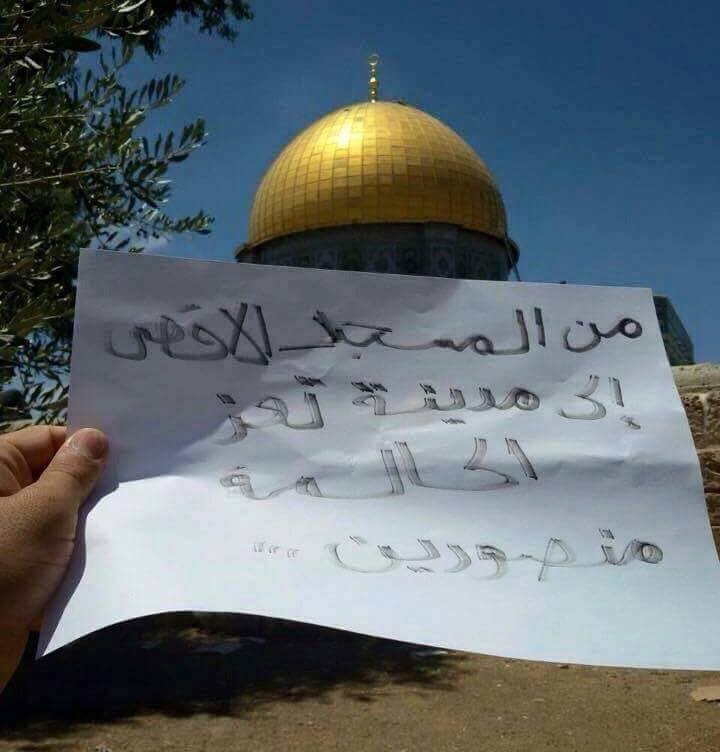 من المسجد الاقصى
إلى مدينة تعز
الحالمة
منصورين ...